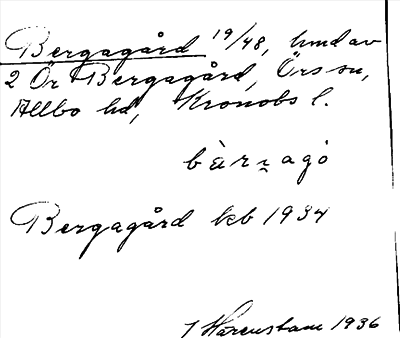 Bergagård 19/48, hmd av
2 Ör Bergagård, Örs sn,
Allbo hd, Kronobs l.
bàrnagó
Bergagård kb 1934
J Harenstam 1936